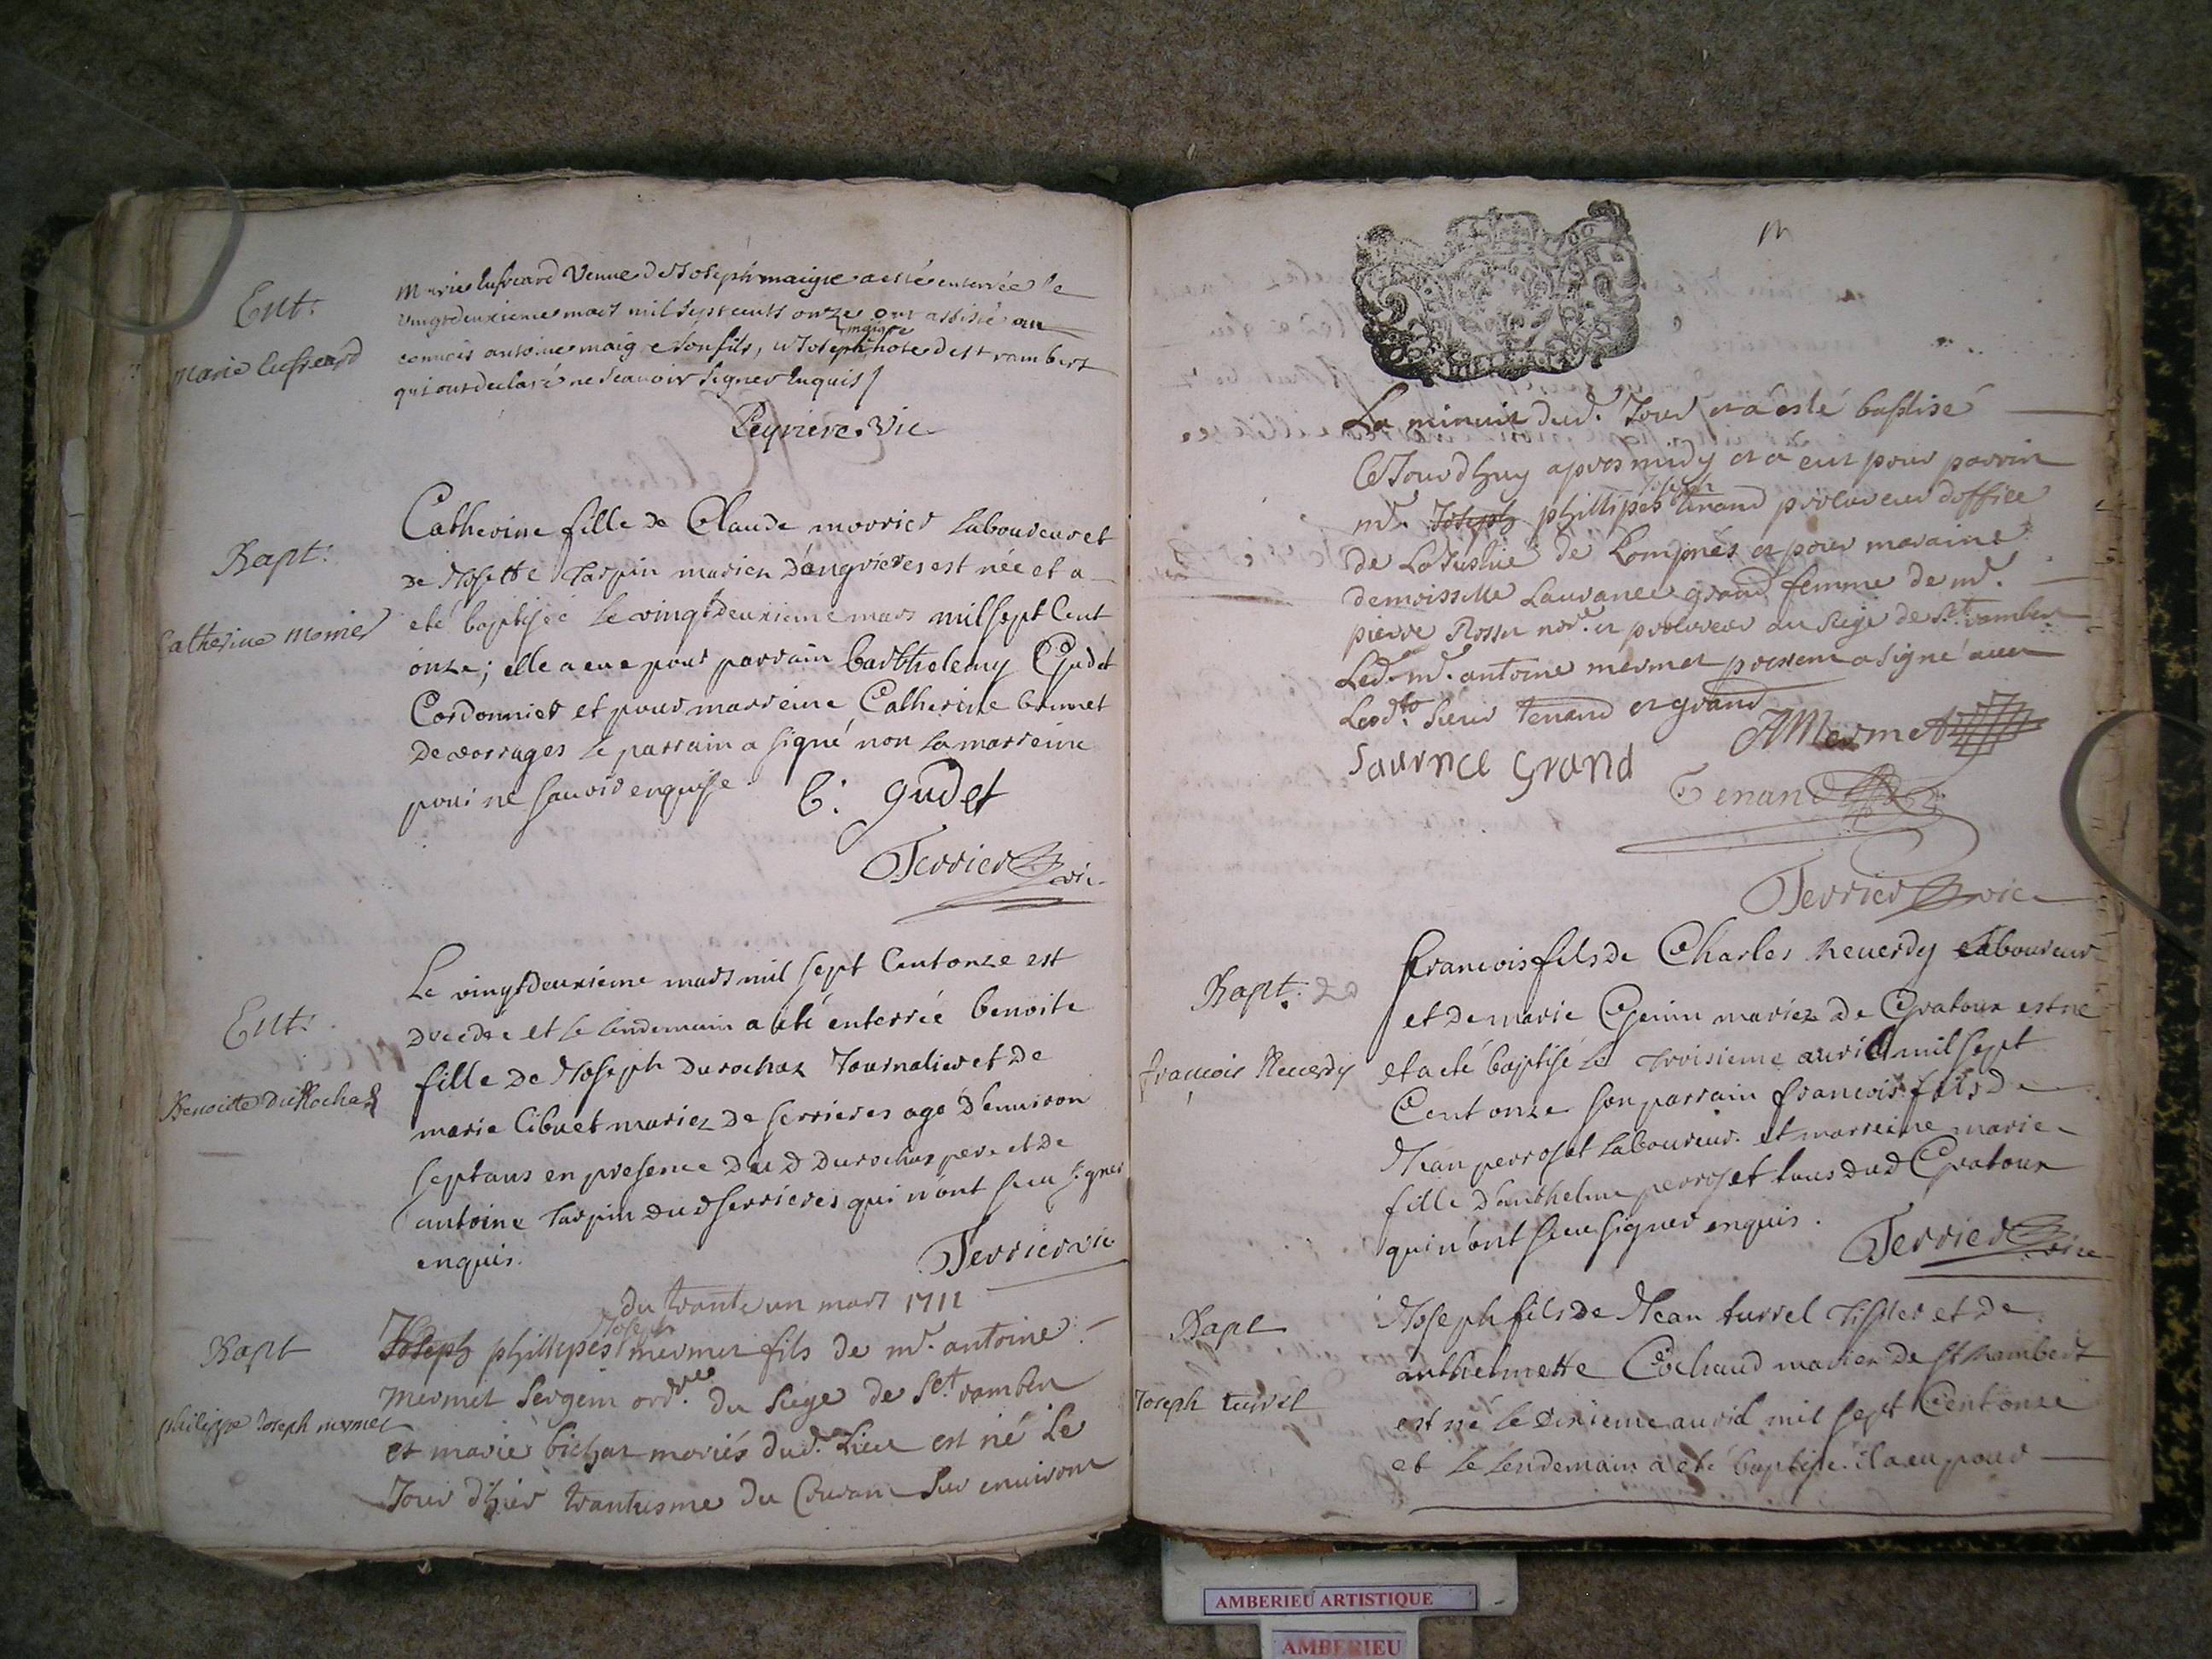 Ent:
Marie
Marie Veuve de Joseph maigre a esté enterrée le
vingtdeuxieme mars mil sept cents onze ont assisté au
convois antoine maigre son fils, et Joseph maigre hote de st rambert
qui ont declaré ne scauoir signer enquis
Peyriere vic
Bapt:
Catherine
Catherine fille de Claude laboureur et
de Josette Tarpin mariez est née et a
eté baptisée le vingtdeuxieme mars mil sept Cent
onze; elle a eue pour parrain barthelemy Gudet
Cordonnier et pour marreine Catherine brunet
le parrain a signé non la marreine
pour ne sauoir enquise
b: gudet
Terrier vic
Ent:
Benoitte duRochas
Le vingtdeuxieme mars mil sept Cent onze est
decedée et le lendemain a eté enterrée benoite
fille de Joseph durochas Journalier et de
marie Cibuet mariez de serrieres age d'enuiron
sept ans en presence dud durochas pere et de
antoine Tarpin dud serrieres qui n'ont sceu signer
enquis.
Terrier vic
du trante un mars 1711
Bapt
philippe Joseph mermet
Joseph phillipes Joseph mermet fils de mr. antoine
mermet sergent ordre. du siege de St rambert
et marie bichat mariés dud. Lieu est né Le
Jour d'hier trantiesme du Courant sur enuiron
La minuit dud. Jour et a esté baptisé
Ce Jourdhuy apres midy et a eut pour parrin
mr. Joseph phillipes Joseph tenand procureur doffice
de La Justice de Lompnés et pour maraine
demoisselle Laurance grand femme de mr.
pierre Rosset nore. et procureur au siege de St. rambert
Led. mr. antoine mermet present a signé auec
Lesdts. sieurs tenand et grand
Laurnce grand
AMermet
Tenand
Terrier vic
Bapt.
francois Reuerdy
francois fils de Charles Reuerdy Laboureur
et de marie Genin mariez de Gratoux est né
et a eté baptisé le troisieme auril mil sept
Cent onze son parrain francois fils de
Jean perroset laboureur et marreine marie
fille d'anthelme perroset tous dud Gratoux
qui n'ont sceu signer enquis.
Terrier vic
Bapt
Joseph turrel
Joseph fils de Jean turrel tissier et de
anthelmette Cochaud mariez de St Rambert
est né le dixieme auril mil sept Cent onze
et le lendemain a eté baptisé. il a eu pour
AMBERIEU ARTISTIQUE
AMBERIEU